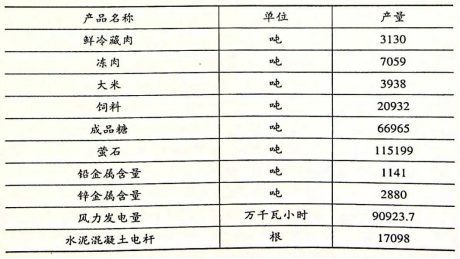 产品名称 单位 产量
鲜冷藏肉 吨 3130
冻肉 吨 7059
大米 吨 3938
饲料 吨 20932
成品糖 吨 66965
萤石 吨 115199
铅金属含量 吨 1141
锌金属含量 吨 2880
风力发电量 万千瓦小时 90923.7
水泥混凝土电杆 根 17098